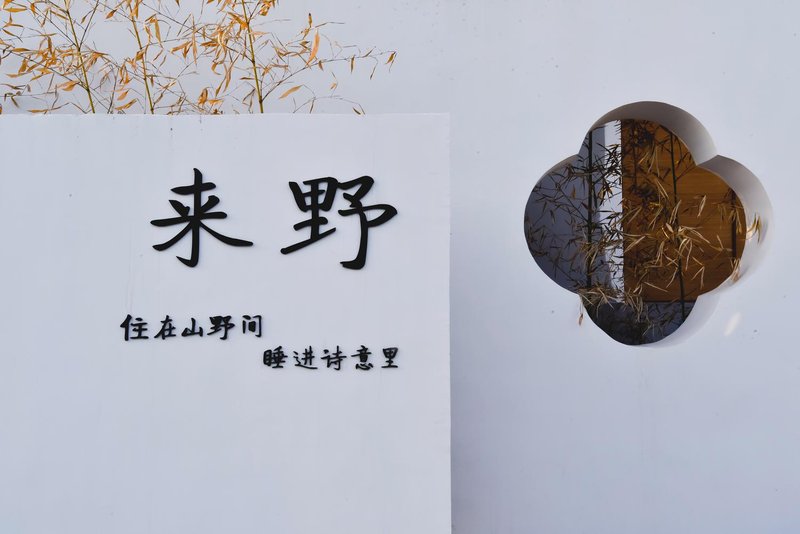 来野
住在山野间
睡进诗意里